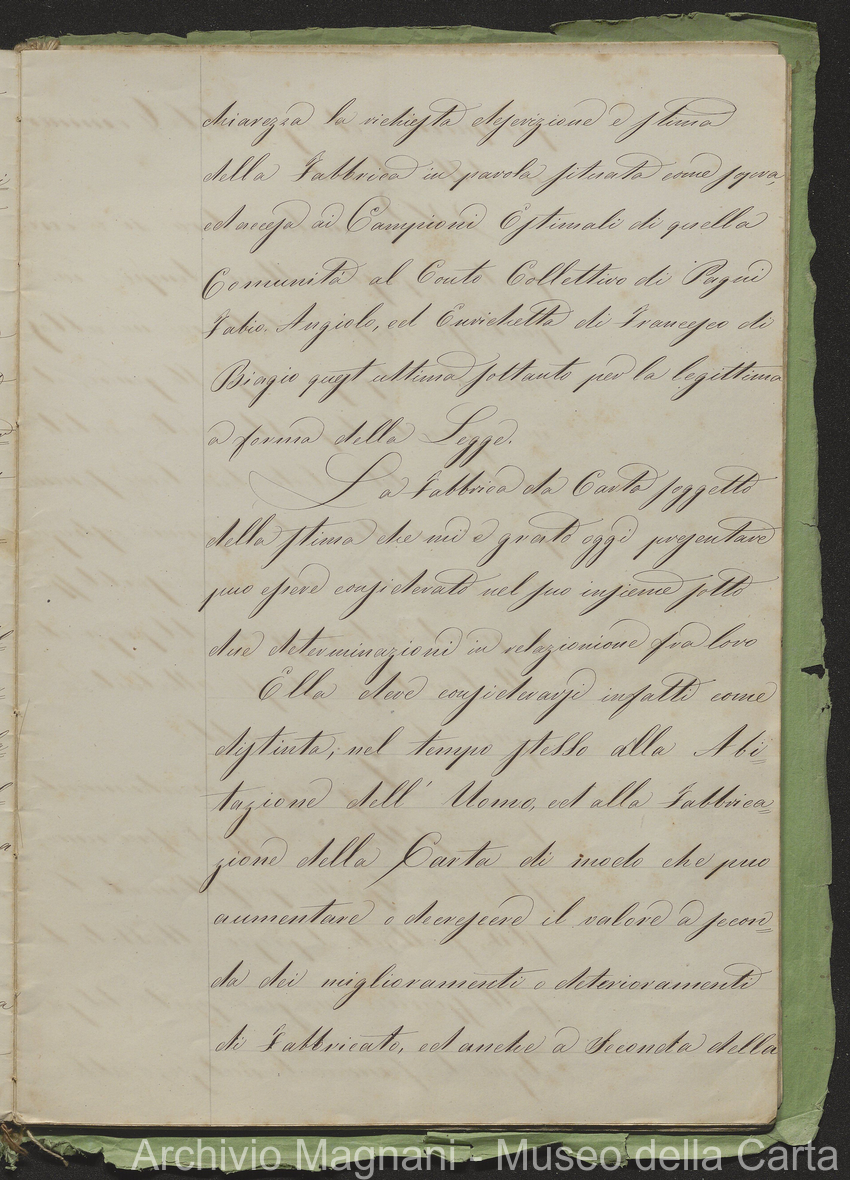 chiarezza la richiesta descrizione e stima
della Fabbrica in parola situata come sopra,
ed accesa ai Campioni Estimali di quella
Comunità al Conto Collettivo di Pagni
Fabio, Angiolo, ed Enrichetta di Francesco di
Biagio quest ultima soltanto per la legittima
a forma della Legge.
La Fabbrica da Carta soggetto
della stima che mi è grato oggi presentare
puo essere considerato nel suo insieme sotto
due determinazioni in relazionione fra loro
Ella deve considerarsi infatti come
distinta, nel tempo stesso alla Abi=
tazione dell' Uomo, ed alla Fabbrica=
zione della Carta di modo che puo
aumentare o decrescere il valore a secon=
da dei miglioramenti o deterioramenti
di Fabbricato, ed anche a Seconda della
Archivio Magnani - Museo della Carta